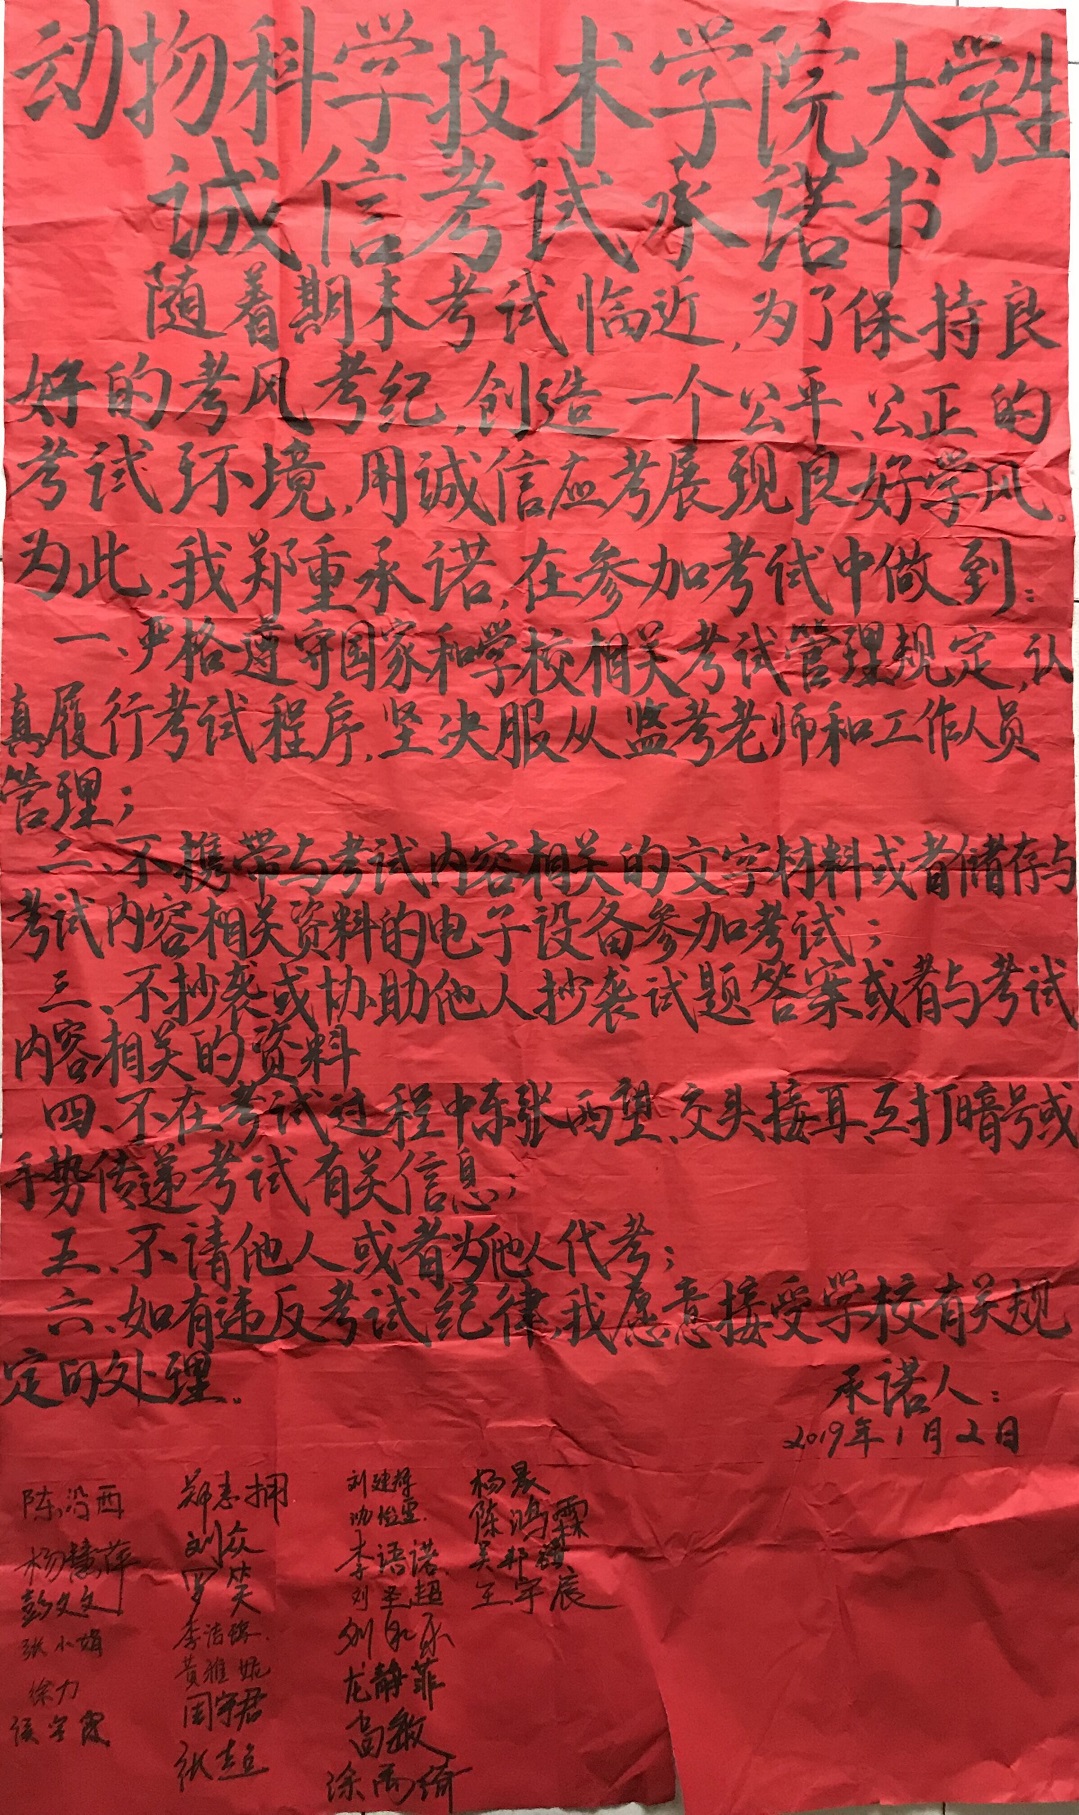 动物科学技术学院大学生
诚信考试承诺书
随着期末考试临近,为了保持良
好的考风考纪,创造一个公平、公正的
考试环境,用诚信应考展现良好学风。
为此,我郑重承诺,在参加考试中做到:
一、严格遵守国家和学校相关考试管理规定,认
真履行考试程序,坚决服从监考老师和工作人员
管理;
二、不携带与考试内容相关的文字材料或者储存与
考试内容相关资料的电子设备参加考试;
三、不抄袭或协助他人抄袭试题答案或者与考试
内容相关的资料
四、不在考试过程中东张西望、交头接耳、互打暗号或
手势传递考试有关信息;
五、不请他人或者为他人代考;
六、如有违反考试纪律,我愿意接受学校有关规
定的处理。
承诺人:
2019年1月2日
陈沿西
杨慧萍
彭文文
张小娟
徐力
郑惠拥
刘众
罗笑
黄雅妮
周宇君
张志立
刘建辉
李语诺
刘圣超
龙静菲
高敏
涂雨绮
杨晨
陈鸿霖
吴邦祺
王宇辰